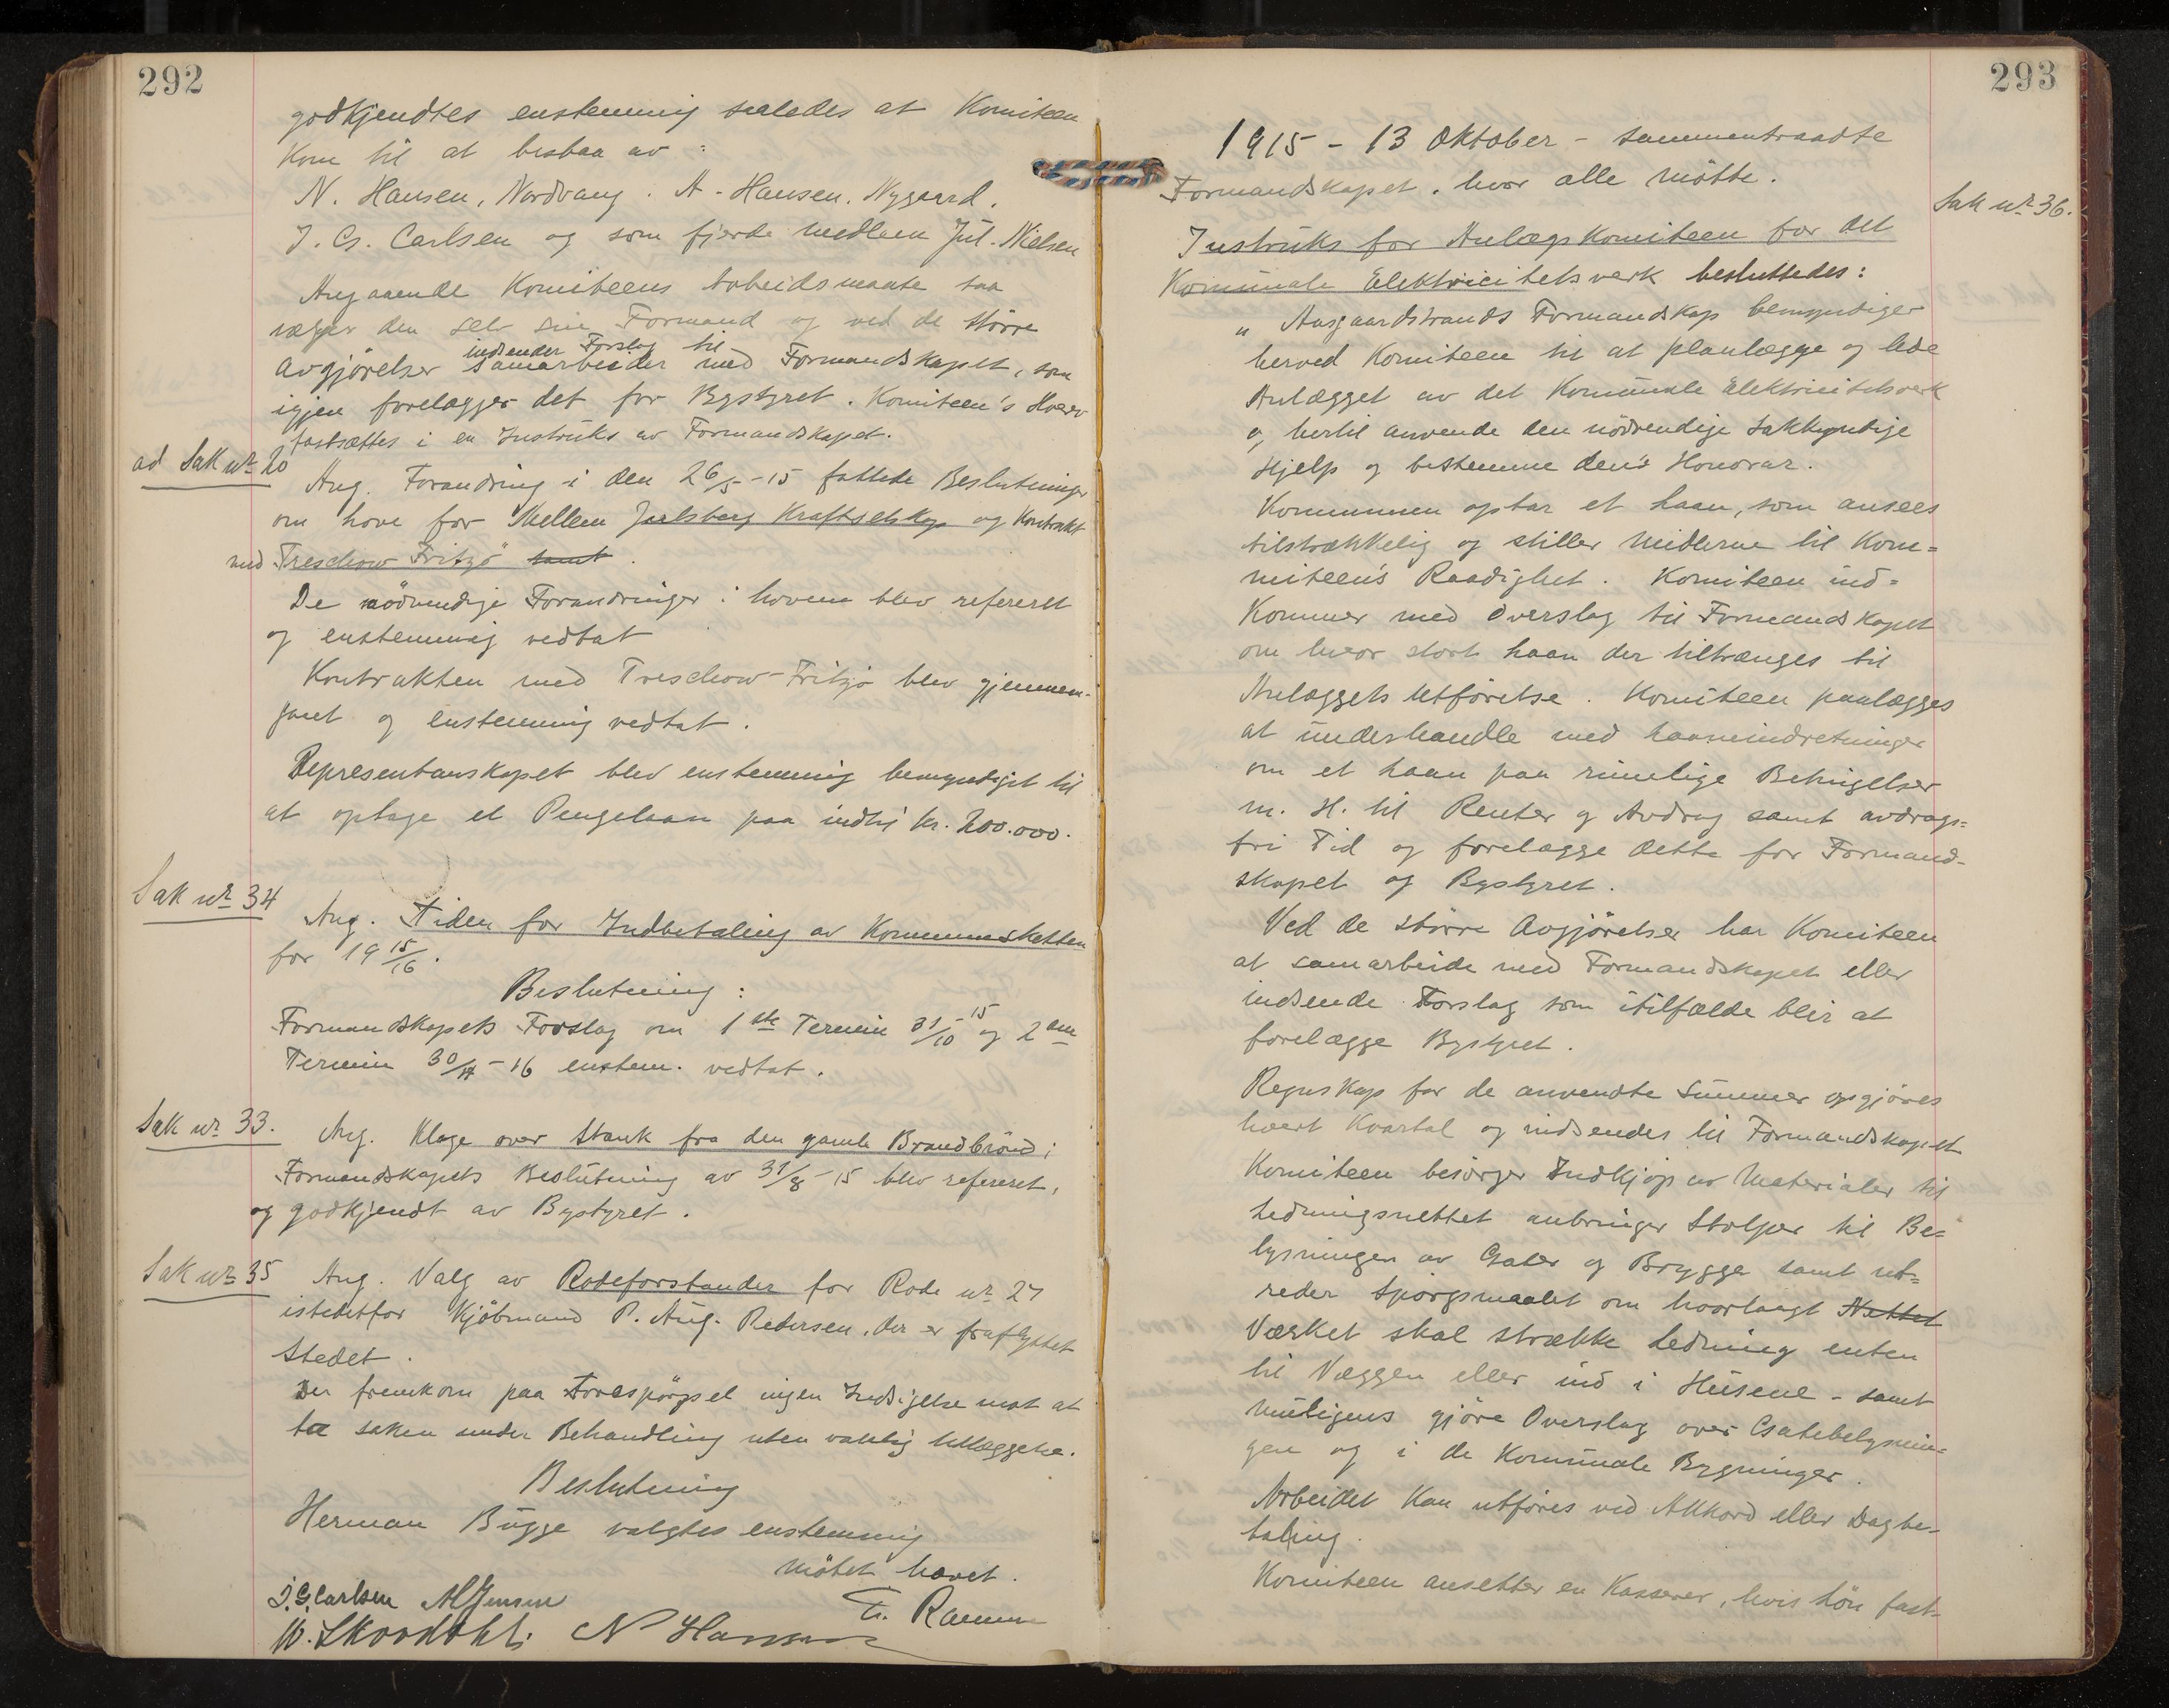 292
godkjendtes enstemmig saaledes at Komiteen
kom til at bestaa av :
N. Hansen, Nordvang. A. Hansen, Nygaard.
J. G. Carlsen og som fjerde medlem Jul. Nielsen
Angaaende Komiteens Arbeidsmaate saa
vælger den selv sin Formand og ved de större
indsender Forslag til
avgjörelser samarbeider med Formandskapet, som
igjen forelægger det for Bystyret. Komiteen's Hverv
fastsættes i en Instruks av Formandskapet.
ad Sak nr 20
Ang. Forandring i den 26/5-15 fattede Beslutninger
om love for Mellem Jarlsberg Kraftselskap og Kontrakt
med Treschow Fritzö" samt .
De nödvendige Forandringer i lovene blev refereret
og enstemmig vedtat
Kontrakten med Treschow-Fritzö blev gjennem-
gaaet og enstemmig vedtat .
Representanskapet blev enstemmig bemyndiget til
at optage et Pengelaan paa indtil kr. 200.000.
Sak nr 34
Ang. Tiden for Indbetaling av Kommuneskatten
for 19 15/16.
Beslutning :
Formandskapets Forslag om 1ste Termin 31/10-15 og 2den
Termin 30/4-16 enstem. vedtat .
Sak nr 33.
Ang. Klage over Stank fra den gamle Brandbrönd ;
Formandskapets Beslutning av 31/8-15 blev refereret,
og godkjendt av Bystyret .
Sak nr 35
Ang. Valg av Rodeforstander for Rode nr 27
istedetfor Kjöbmand P. Aug. Pedersen, der er fraflyttet
Stedet .
Der fremkom paa Forespörgsel ingen Indsigelse mot at
ta saken under Behandling uten vanlig utlæggelse.
Beslutning
Herman Bugge valgtes enstemmig
Mötet hævet .
J.G.Carlsen AHJensen
N Hansen
293
1915 - 13 Oktober - sammentraadte
Formandskapet . hvor alle mötte .
Sak nr 36.
Instruks for Anlægskomiteen for det
Kommunale Elektricitetsverk besluttedes :
„ Aasgaardstrands Formandskap bemyndiger
herved Komiteen til at planlægge og lede
Anlægget av det Kommunale Elektricitetsverk
og hertil anvende den nödvendige sakkyndige
Hjelp og bestemme den's Honorar .
Kommunen optar et laan, som ansees
tilstrækkelig og stiller Midlerne til Kom=
miteen's Raadighet . Komiteen ind=
kommer med Overslag til Formandskapet
om hvor stort laan der tiltrænges til
Anlæggets Utförelse . Komiteen paalægges
at underhandle med laaneindretninger
om et laan paa rimelige Betingelser
m. H. til Renter og Avdrag samt avdrags=
fri Tid og forelægge dette for Formand-
skapet og Bystyret .
Ved de större Avgjörelser har Komiteen
at samarbeide med Formandskapet eller
indsende Forslag som itilfælde blir at
forelægge Bystyret .
Regnskap for de anvendte Summer opgjöres
hvert Kvartal og indsendes til Formandskapet
Komiteen besörger Indkjöp av Materialer til
Ledningsnettet anbringer Stolper til Be=
lysningen av Gater og Brygge samt ut=
reder Spörgsmaalet om hvorlangt Nettet
Værket skal strække Ledning enten
til Væggen eller ind i Husene - samt
muligens gjöre Overslag over Gatebelysnin=
gen og i de Kommunale Bygninger .
Arbeidet kan utföres ved Akkord eller Dagbe-
taling .
Komiteen ansetter en Kasserer, hvis lön fast-